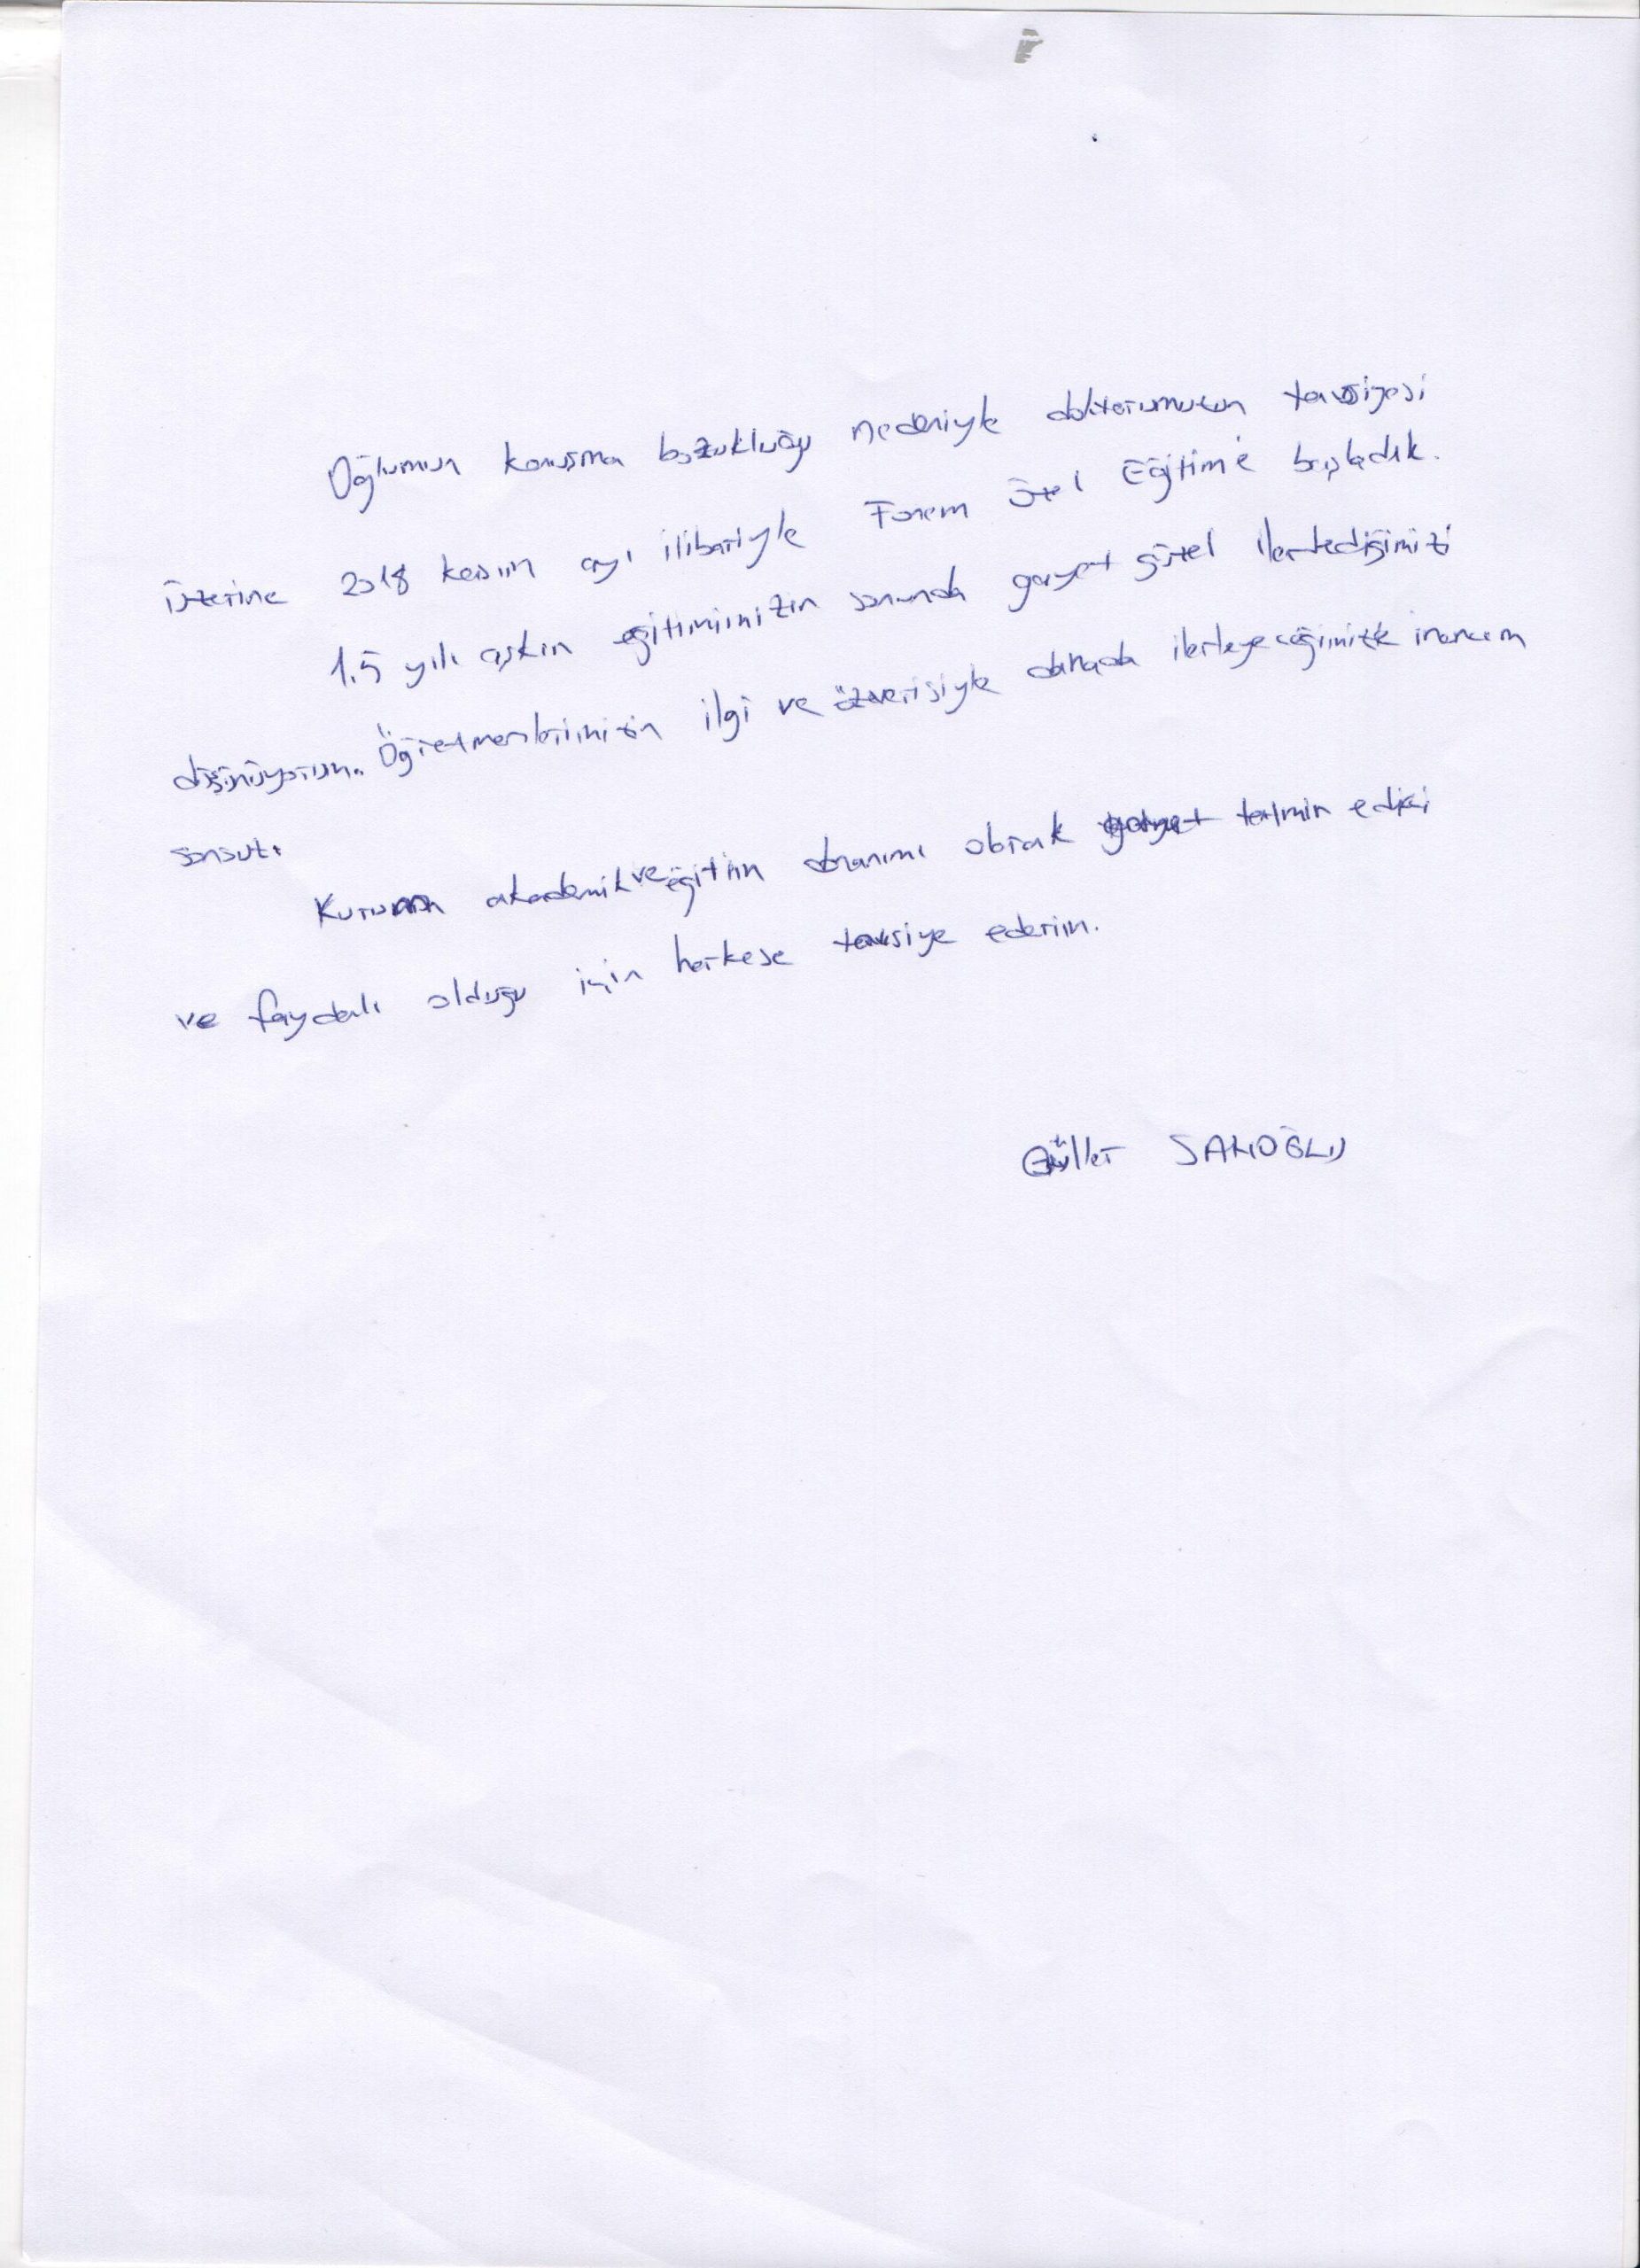 Oğlumun konuşma bozukluğu nedeniyle doktorumuzun tavsiyesi
üzerine 2018 kasım ayı itibariyle Fonem Özel Eğitim'e başladık.
1.5 yılı aşkın eğitimimizin sonunda gayet güzel ilerlediğimizi
düşünüyorum. Öğretmenlerimizin ilgi ve özverisiyle dahada ilerleyeceğimize inancım
sonsuz.
Kurumun akademik ve eğitim donanımı olarak gayet tatmin edici
ve faydalı olduğu için herkese tavsiye ederim.
Güller SAKOĞLU